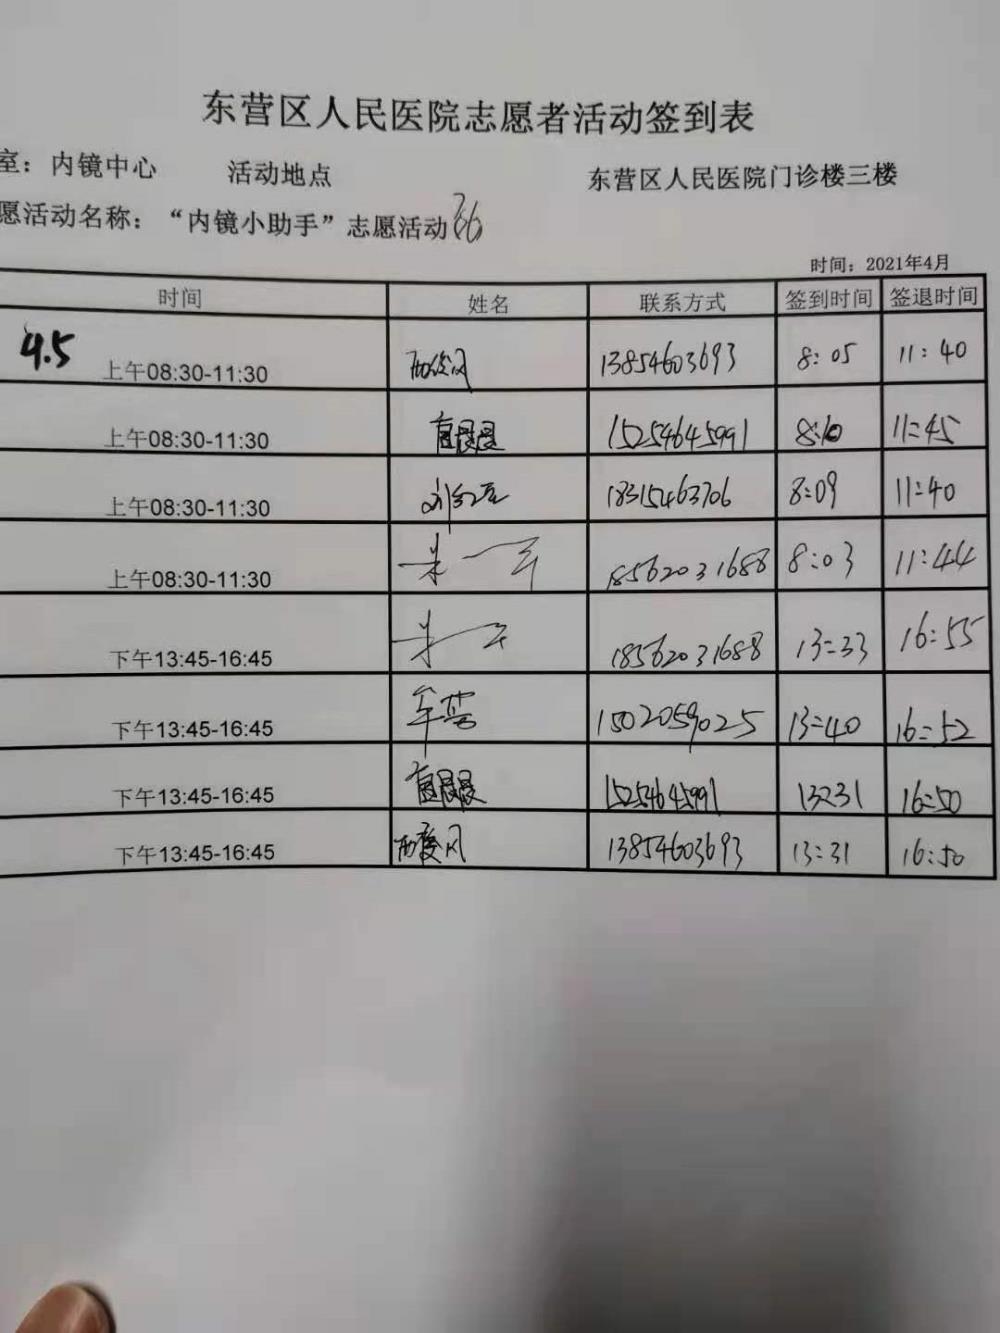 东营区人民医院志愿者活动签到表
室：内镜中心 活动地点 东营区人民医院门诊楼三楼
愿活动名称：“内镜小助手”志愿活动36
时间：2021年4月
时间 姓名 联系方式 签到时间 签退时间
4.5 上午08:30-11:30 13854603693 8:05 11:40
上午08:30-11:30 15254645991 8:10 11:45
上午08:30-11:30 18315463706 8:09 11:40
上午08:30-11:30 18562031688 8:03 11:44
下午13:45-16:45 18562031688 13:33 16:55
下午13:45-16:45 1502059025 13:40 16:52
下午13:45-16:45 15254645991 13:31 16:50
下午13:45-16:45 13854603693 13:31 16:50